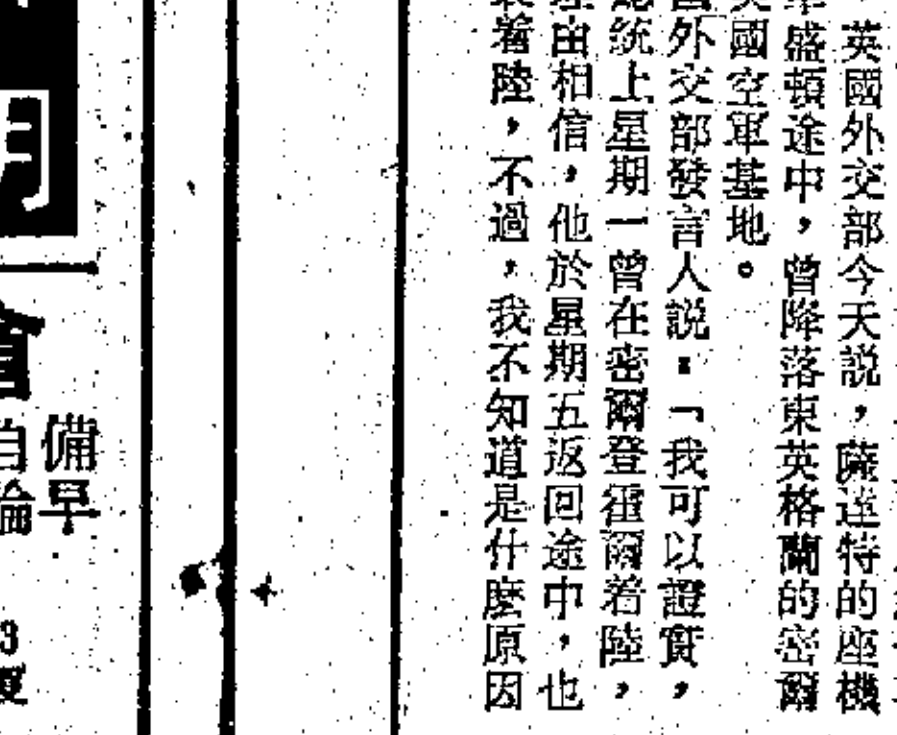 英國外交部今天説，薩達特的座機
盛頓途中，曾降落東英格蘭的密爾
國空軍基地。
外交部發言人説：「我可以證實，
統上星期一曾在密爾登霍爾着陸，
由相信，他於星期五返回途中，也
着陸，不過，我不知道是什麼原因
備早